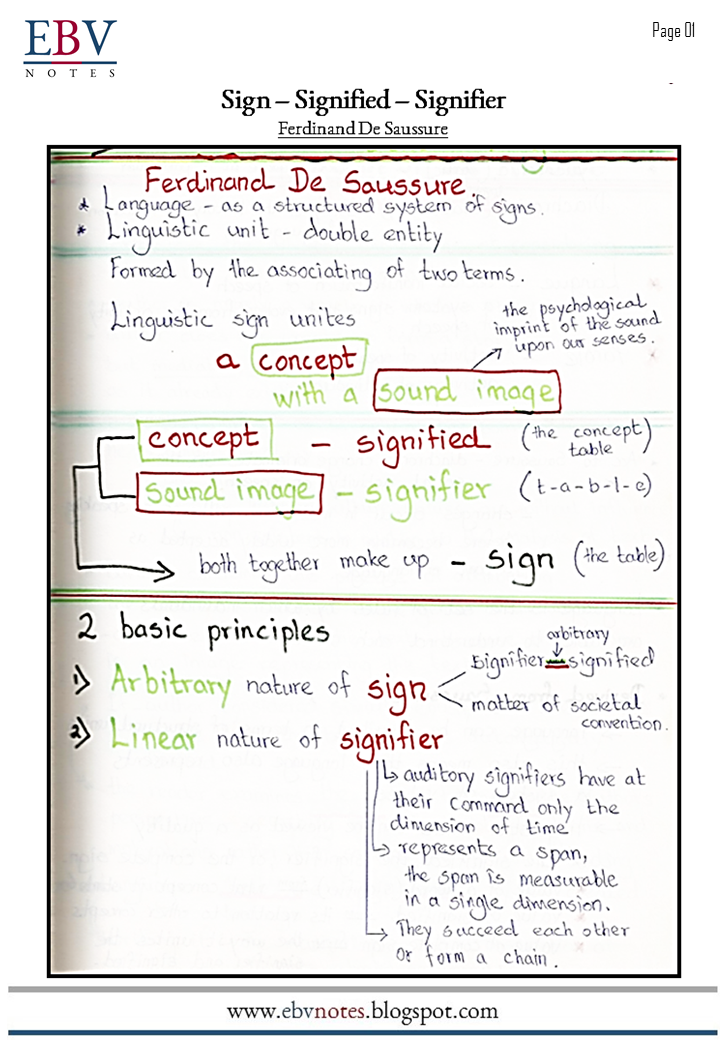 EBV
NOTES
Page 01
Sign – Signified – Signifier
Ferdinand De Saussure
Ferdinand De Saussure.
* Language - as a structured system of signs.
* Linguistic unit - double entity
Formed by the associating of two terms.
Linguistic sign unites
the psychological
imprint of the sound
upon our senses.
a concept
with a sound image
concept - signified (the concept table)
sound image - signifier (t-a-b-l-e)
both together make up - sign (the table)
2 basic principles
1) Arbitrary nature of sign
arbitrary
signifier signified
matter of societal
convention.
2) Linear nature of signifier
auditory signifiers have at
their command only the
dimension of time
represents a span,
the span is measurable
in a single dimension.
They succeed each other
or form a chain.
www.ebvnotes.blogspot.com